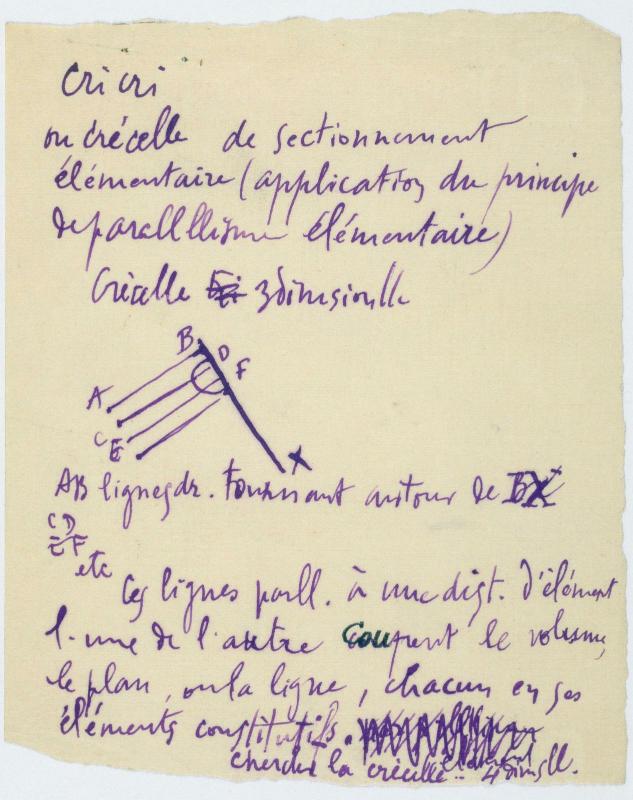 Cri cri
ou crécelle de sectionnement
élémentaire (application du principe
de parallllisme élémentaire)
Crécelle 3dimsionlle
B
D
F
A
C
E
X
AB lignes dr. tournant autour de BX
CD
EF
etc
Ces lignes parll. à une dist. d'élément
l'une de l'autre coupent le volume,
le plan, ou la ligne, chacun en ses
éléments constitutifs.
chercher la crécelle 4dimsll.